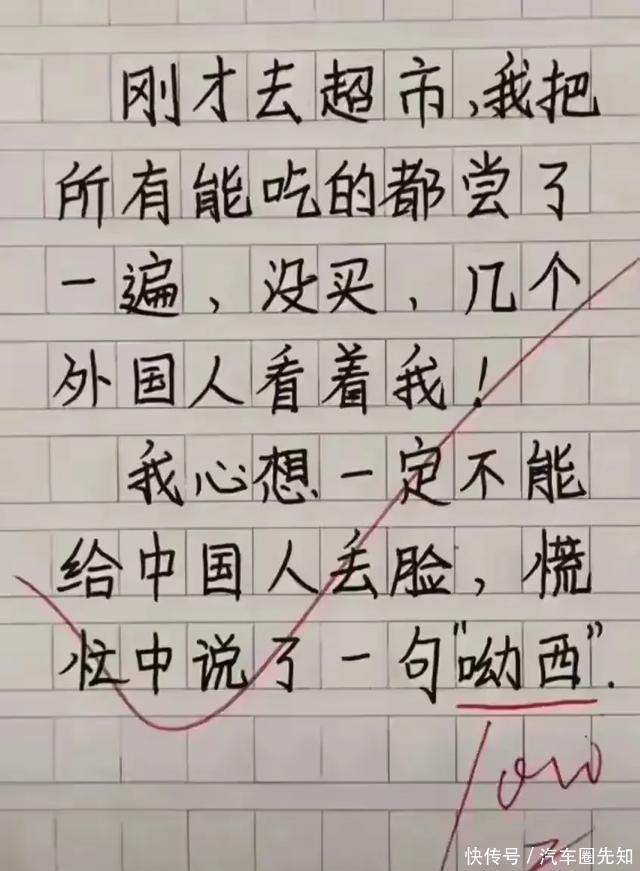 刚才去超市,我把
所有能吃的都尝了
一遍，没买，几个
外国人看着我！
我心想一定不能
给中国人丢脸，慌
忙中说了一句“呦西”.
快传号／汽车圈先知